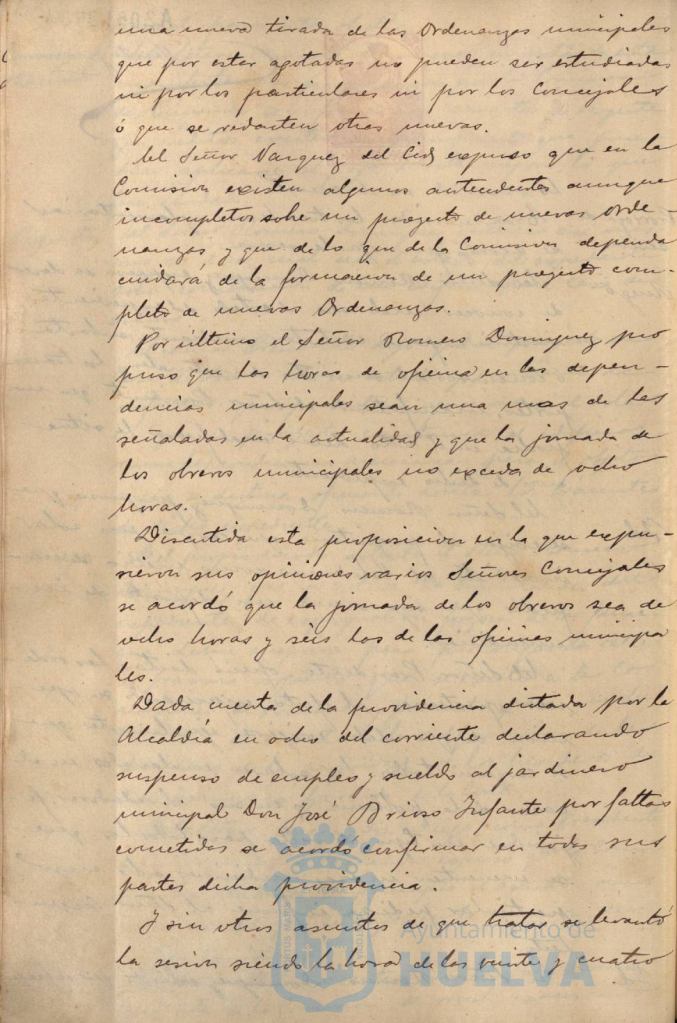 una nueva tirada de las Ordenanzas municipales
que por estar agotadas no pueden ser estudiadas
ni por los particulares ni por los Concejales
ó que se redacten otras nuevas.
El Señor Vazquez del Cid expuso que en la
Comision existen algunos antecedentes aunque
incompletos sobre un proyecto de nuevas orde-
nanzas y que de lo que de la Comision dependa
cuidará de la formacion de un proyecto com-
pleto de nuevas Ordenanzas.
Por último el Señor Romero Dominguez pro
puso que las horas de oficina en las depen-
dencias municipales sean una mas de las
señaladas en la actualidad y que la jornada de
los obreros municipales no exceda de ocho
horas.
Discutida esta proposicion en la que expu-
sieron sus opiniones varios Señores Concejales
se acordó que la jornada de los obreros sea de
ocho horas y séis las de las oficinas municipa
les.
Dada cuenta de la providencia dictada por la
Alcaldía en ocho del corriente declarando
suspenso de empleo y sueldo al jardinero
municipal Don José Brioso Infante por faltas
cometidas se acordó confirmar en todas sus
partes dicha providencia.
Y sin otros asuntos de que tratar se levantó
la sesion siendo la hora de las veinte y cuatro
Ayuntamiento de
HUELVA